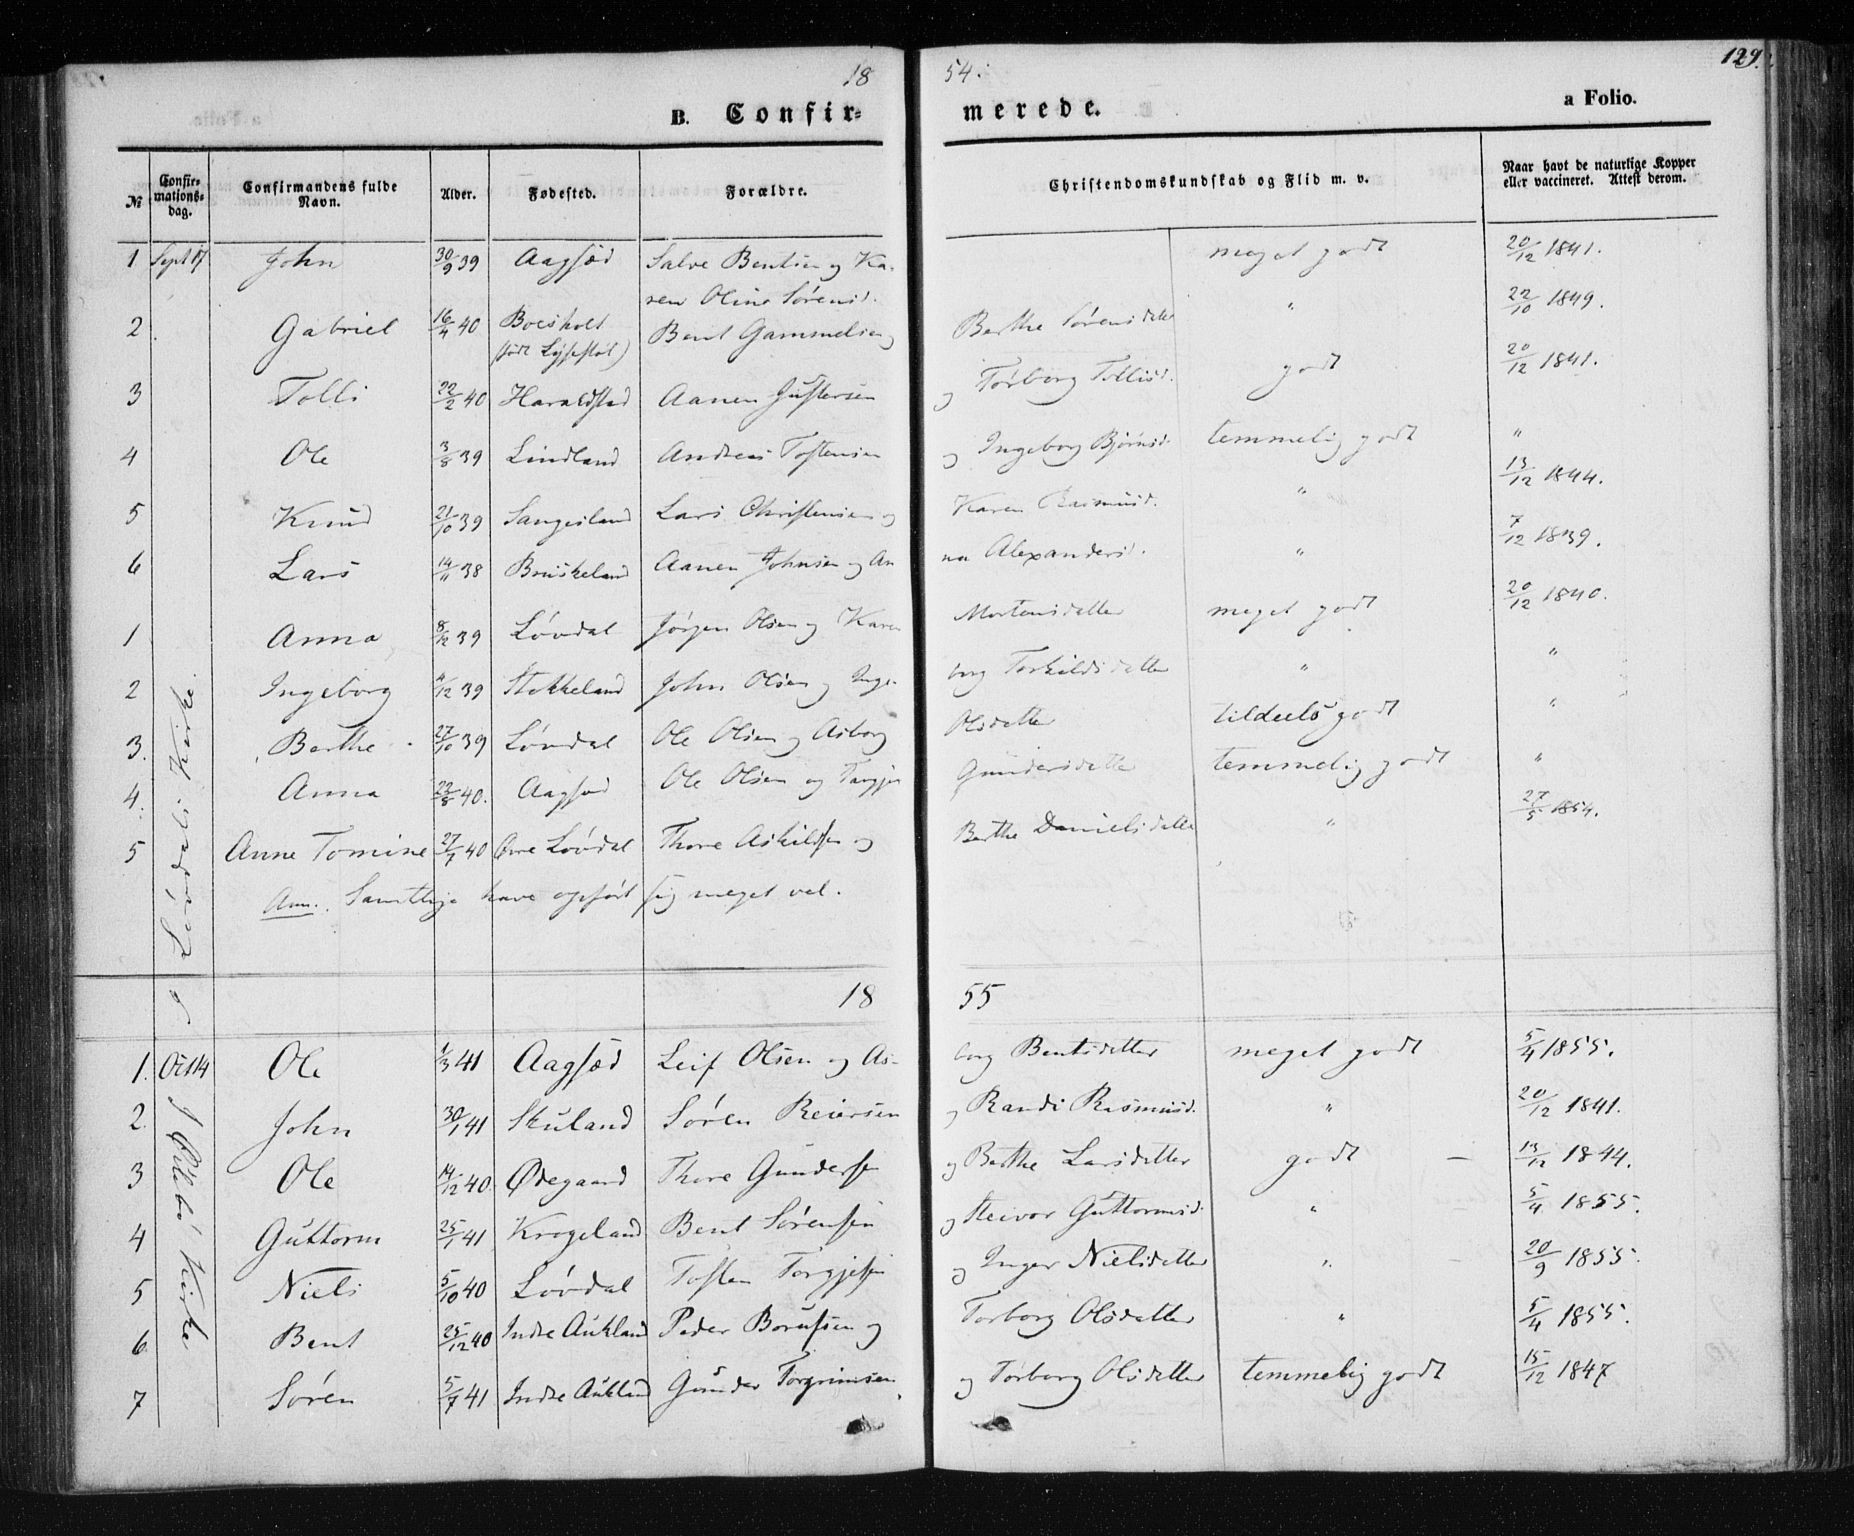 18 54. 129.
B. Confir= merede. a Folio.
№ Confir=mations=dag. Confirmandens fulde Navn. Alder. Fødested. Forældre. Christendomskundskab og Flid m. v. Naar havt de naturlige Kopper eller vaccineret. Attest derom.
1 Sept 17 John 30/9 39 Aagsæd Salve Bentsen og Ka- meget godt 20/12 1841.
ren Oline Sørensd.
2 Gabriel 16/4 40 Boesholt Bent Gammelsen og Berthe Sørensdatter " 22/10 1849.
(født Lysestøl)
3 Tolli 22/2 40 Haraldstad Aanen Gustersen og Torborg Tollisd. godt 20/12 1841.
4 Ole 3/8 39 Lindland Andreas Tostensen og Ingeborg Bjørnsd. temmelig godt "
5 Knud 21/10 39 Sangesland Lars Christensen og Karen Rasmusd. " 13/12 1844.
6 Lars 14/11 38 Bruskeland Aanen Johnsen og An na Alexandersd. " 7/12 1839.
1 Anna 8/12 39 Løvdal Jørgen Olsen og Karen Mortensdatter meget godt 20/12 1840.
2 Ingeborg 11/12 39 Stokkeland John Olsen og Inge- borg Torkildsdatter " "
3. Berthe 27/10 39 Løvdal Ole Olsen og Asborg Olsdatter tildeels godt "
4. Anna 23/8 40. Aagsæd Ole Olsen og Targjer Gundersdatter temmelig godt "
5 Anne Tomine 27/7 40 Øvre Løvdal Thore Askildsen og Berthe Danielsdatter " 27/5 1854.
Anm. Samtlige have opført sig meget vel.
i Løvdals Kirke
18 55
1. Oct 14 Ole 1/3 41 Aagsæd Leif Olsen og As- borg Bentsdatter meget godt 5/4 1855.
2. John 30/1 41 Skuland Søren Reiersen og Randi Rasmusd. " 20/12 1841.
3 Ole 14/12 40. Ødegaard Thore Gundersen og Berthe Larsdatter godt – 13/12 1844.
4 Guttorm 25/1 41 Krogeland Bent Sørensen og Steivor Guttormsd. " 5/4 1855.
5 Niels 5/10 40 Løvdal Tosten Torgjesen og Inger Nielsdatter " 20/9 1855.
6 Bent 25/12 40 Indre Aukland Peder Borufsen og Torborg Olsdatter " 5/4 1855.
7 Søren 5/7 41 Indre Aukland Gunder Torgrimsen og Torborg Olsdatter temmelig godt 15/12 1847
I Øllebø Kirke